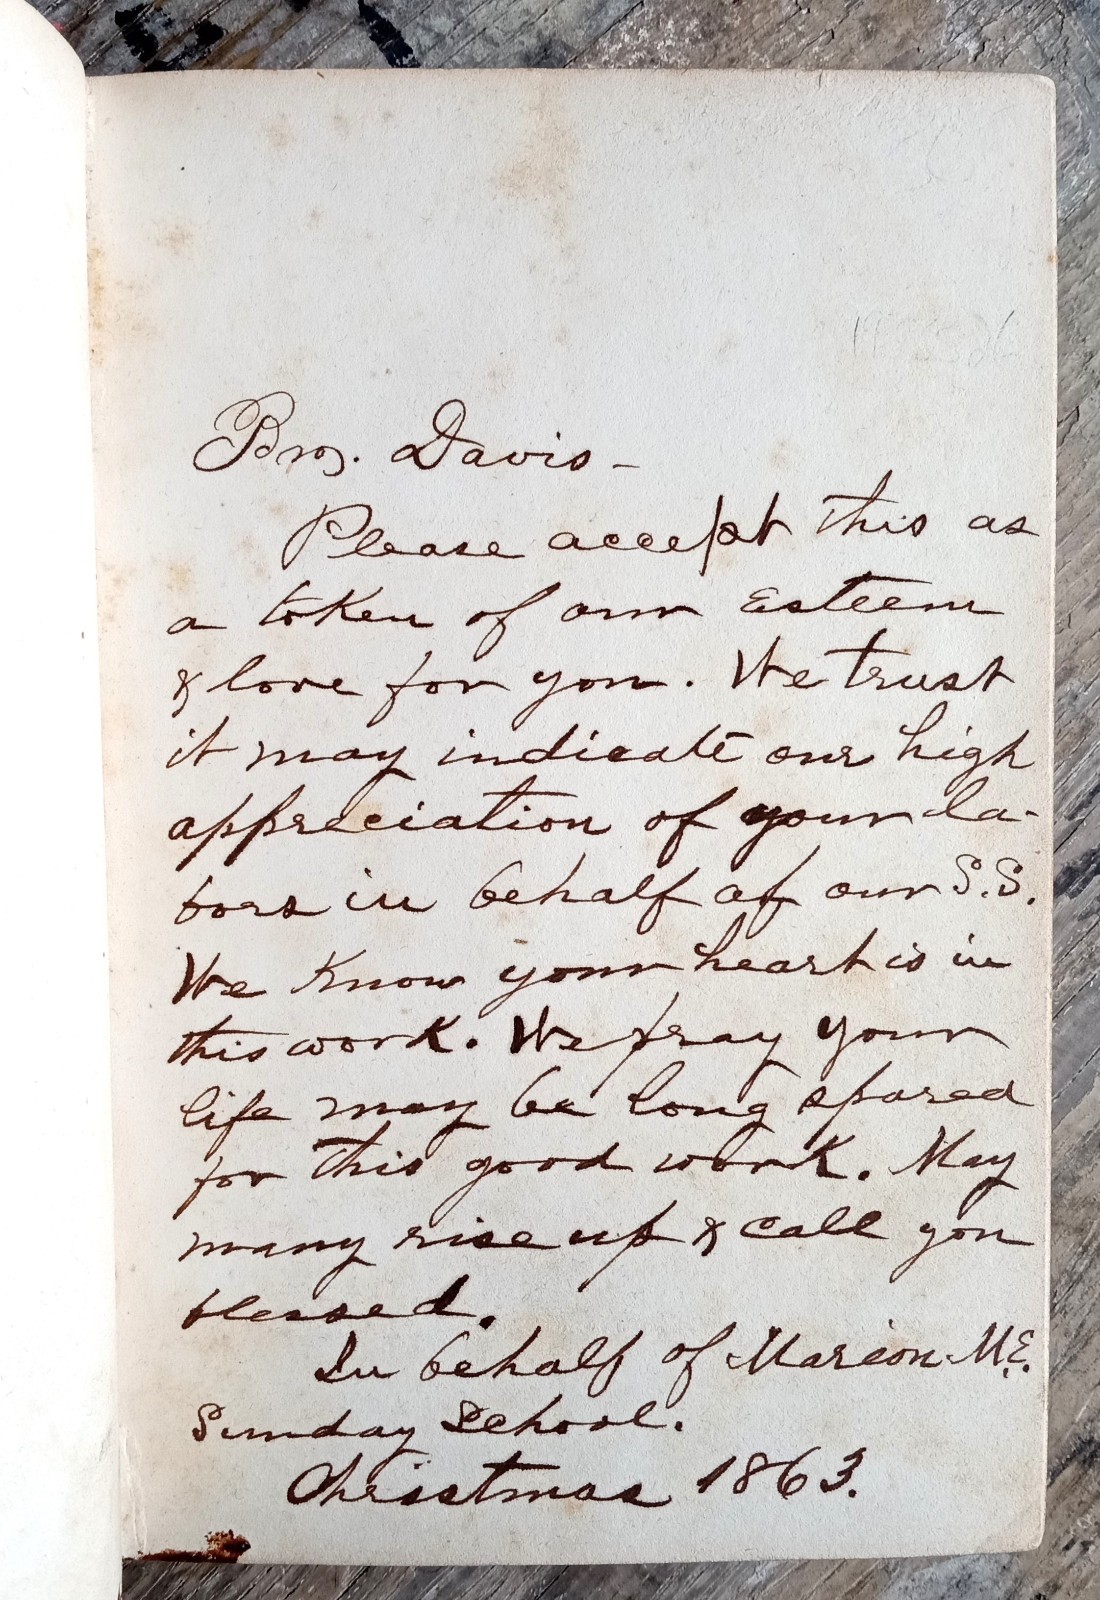 Bro. Davis -
Please accept this as
a token of our Esteem
& love for you. We trust
it may indicate our high
appreciation of your la-
bors in behalf of our S.S.
We Know your heart is in
this work. We pray your
life may be long spared
for this good work. May
many rise up & call you
blessed.
In behalf of Marion M.E.
Sunday School.
Christmas 1863.